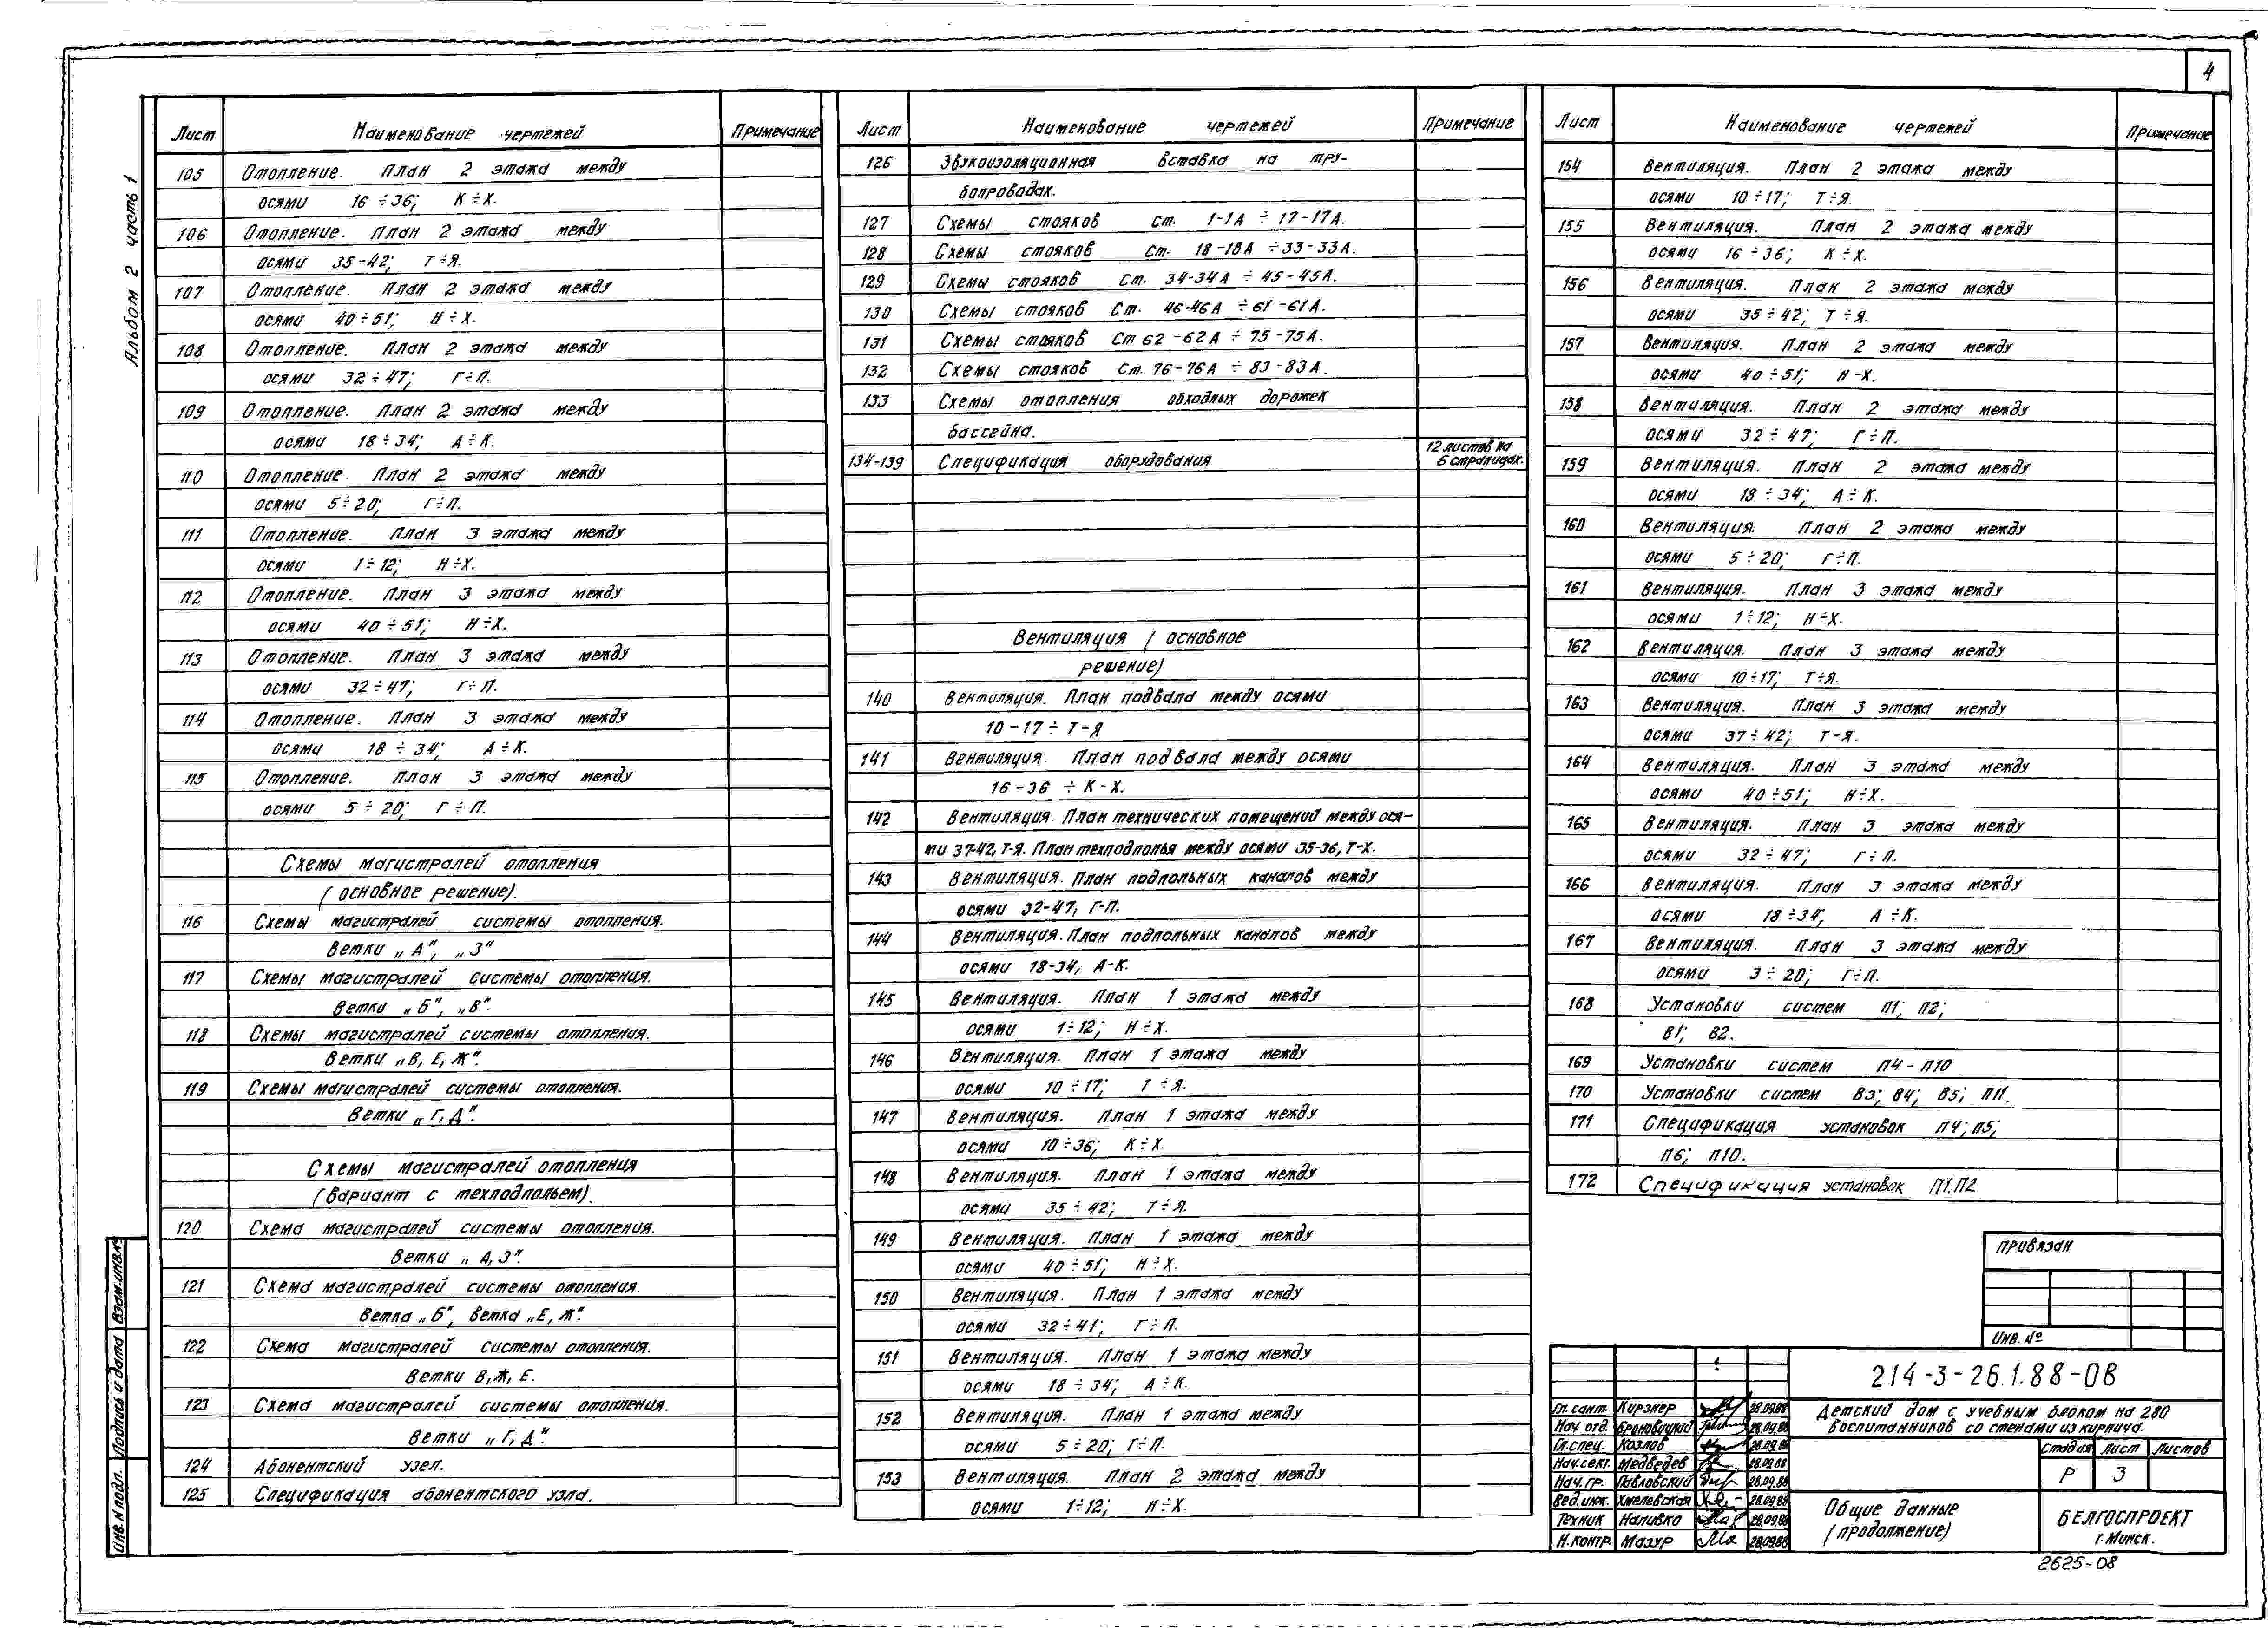 4
Альбом 2 часть 1
Лист Наименование чертежей Примечание
105 Отопление. План 2 этажа между
осями 16÷36; К÷Х.
106 Отопление. План 2 этажа между
осями 35-42; Т÷Я.
107 Отопление. План 2 этажа между
осями 40÷51; Н÷Х.
108 Отопление. План 2 этажа между
осями 32÷47; Г÷П.
109 Отопление. План 2 этажа между
осями 18÷34; А÷К.
110 Отопление. План 2 этажа между
осями 5÷20; Г÷П.
111 Отопление. План 3 этажа между
осями 1÷12; Н÷Х.
112 Отопление. План 3 этажа между
осями 40÷51; Н÷Х.
113 Отопление. План 3 этажа между
осями 32÷47; Г÷П.
114 Отопление. План 3 этажа между
осями 18÷34; А÷К.
115 Отопление. План 3 этажа между
осями 5÷20; Г÷П.
Схемы магистралей отопления
(основное решение).
116 Схемы магистралей системы отопления.
Ветки „А", „З"
117 Схемы магистралей системы отопления.
Ветки „Б", „В".
118 Схемы магистралей системы отопления.
Ветки „В, Е, Ж".
119 Схемы магистралей системы отопления.
Ветки „Г, Д".
Схемы магистралей отопления
(вариант с техподпольем).
120 Схема магистралей системы отопления.
Ветки „А, З".
121 Схема магистралей системы отопления.
Ветка „Б", ветка „Е, Ж".
122 Схема магистралей системы отопления.
Ветки В, Ж, Е.
123 Схема магистралей системы отопления.
Ветки „Г, Д".
124 Абонентский узел.
125 Спецификация абонентского узла.
Лист Наименование чертежей Примечание
126 Звукоизоляционная вставка на тру-
бопроводах.
127 Схемы стояков ст. 1-1А ÷ 17-17А.
128 Схемы стояков Ст. 18-18А ÷ 33-33А.
129 Схемы стояков Ст. 34-34А ÷ 45-45А.
130 Схемы стояков Ст. 46-46А ÷ 61-61А.
131 Схемы стояков Ст 62-62А ÷ 75-75А.
132 Схемы стояков Ст. 76-76А ÷ 83-83А.
133 Схемы отопления обходных дорожек
бассейна.
134-139 Спецификация оборудования 12 листов на
6 страницах.
Вентиляция (основное
решение)
140 Вентиляция. План подвала между осями
10-17 ÷ Т-Я
141 Вентиляция. План подвала между осями
16-36 ÷ К-Х.
142 Вентиляция. План технических помещений между ося-
ми 37-42, Т-Я. План техподполья между осями 35-36, Т-Х.
143 Вентиляция. План подпольных каналов между
осями 32-47, Г-П.
144 Вентиляция. План подпольных каналов между
осями 18-34, А-К.
145 Вентиляция. План 1 этажа между
осями 1÷12; Н÷Х.
146 Вентиляция. План 1 этажа между
осями 10÷17; Т÷Я.
147 Вентиляция. План 1 этажа между
осями 10÷36; К÷Х.
148 Вентиляция. План 1 этажа между
осями 35÷42; Т÷Я.
149 Вентиляция. План 1 этажа между
осями 40÷51; Н÷Х.
150 Вентиляция. План 1 этажа между
осями 32÷41; Г÷П.
151 Вентиляция. План 1 этажа между
осями 18÷34; А÷К.
152 Вентиляция. План 1 этажа между
осями 5÷20; Г÷П.
153 Вентиляция. План 2 этажа между
осями 1÷12; Н÷Х.
Лист Наименование чертежей Примечание
154 Вентиляция. План 2 этажа между
осями 10÷17; Т÷Я.
155 Вентиляция. План 2 этажа между
осями 16÷36; К÷Х.
156 Вентиляция. План 2 этажа между
осями 35÷42; Т÷Я.
157 Вентиляция. План 2 этажа между
осями 40÷51; Н-Х.
158 Вентиляция. План 2 этажа между
осями 32÷47; Г÷П.
159 Вентиляция. План 2 этажа между
осями 18÷34; А÷К.
160 Вентиляция. План 2 этажа между
осями 5÷20; Г÷П.
161 Вентиляция. План 3 этажа между
осями 1÷12; Н÷Х.
162 Вентиляция. План 3 этажа между
осями 10÷17; Т÷Я.
163 Вентиляция. План 3 этажа между
осями 37÷42; Т-Я.
164 Вентиляция. План 3 этажа между
осями 40÷51; Н÷Х.
165 Вентиляция. План 3 этажа между
осями 32÷47; Г÷П.
166 Вентиляция. План 3 этажа между
осями 18÷34; А÷К.
167 Вентиляция. План 3 этажа между
осями 3÷20; Г÷П.
168 Установки систем П1; П2;
В1; В2.
169 Установки систем П4-П10
170 Установки систем В3; В4; В5; П11.
171 Спецификация установок П4; П5;
П6; П10.
172 Спецификация установок П1, П2
Привязан
Инв. №
214-3-26.1.88-ОВ
Гл. сант. Кирзнер 28.09.88
Нач. отд. Брановицкий 28.09.88
Гл. спец. Козлов 28.09.88
Нач. сект. Медведев 28.09.88
Нач. гр. Павловский 28.09.88
Вед. инж. Хмелевская 28.09.88
Техник Наливко 28.09.88
Н. контр. Мазур 28.09.88
Детский дом с учебным блоком на 280
воспитанников со стенами из кирпича.
Стадия Лист Листов
Р 3
Общие данные
(продолжение)
БЕЛГОСПРОЕКТ
г. Минск.
2625-08
Инв. № подл. Подпись и дата Взам. инв. №